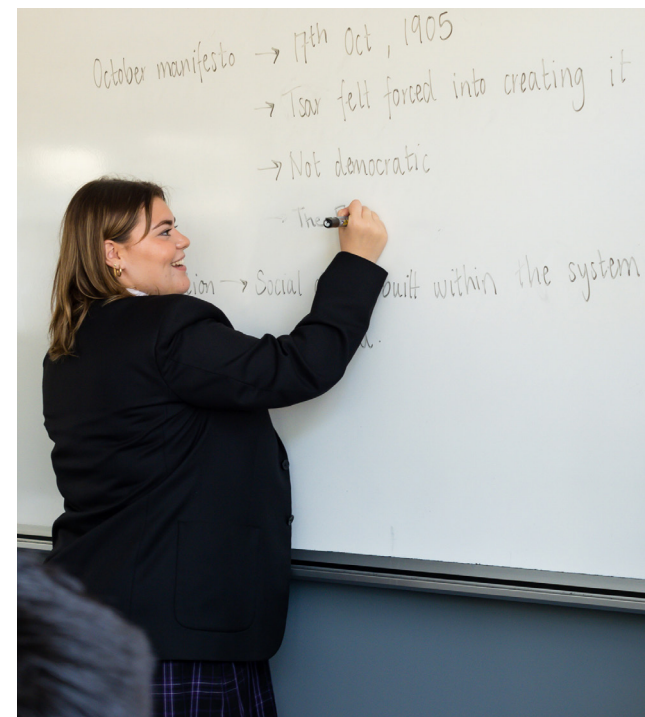 October manifesto → 17th Oct, 1905
→ Tsar felt forced into creating it
→ Not democratic
→ The
→ Social built within the system